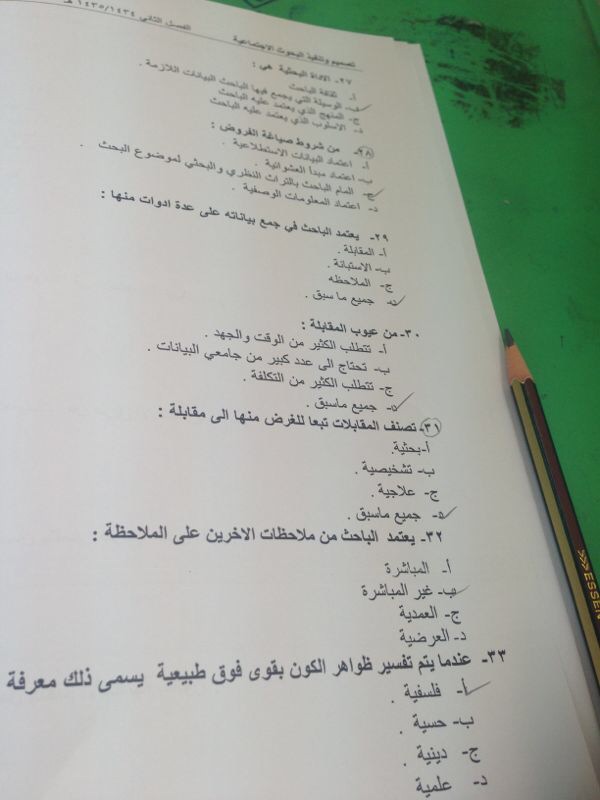 تصميم وتنفيذ البحوث الاجتماعية الفصل الثاني ١٤٣٤/١٤٣٥ هـ
٢٧- الاداة البحثية هي :
أ- ثقافة الباحث
ب- الوسيلة التي يجمع فيها الباحث البيانات اللازمة .
ج- المنهج الذي يعتمد عليه الباحث
د- الاسلوب الذي يعتمد عليه الباحث
٢٨- من شروط صياغة الفروض :
أ- اعتماد البيانات الاستطلاعية .
ب- اعتماد مبدأ العشوائية .
ج- المام الباحث بالتراث النظري والبحثي لموضوع البحث .
د- اعتماد المعلومات الوصفية .
٢٩- يعتمد الباحث في جمع بياناته على عدة ادوات منها :
أ- المقابلة .
ب- الاستبانة .
ج- الملاحظه
د- جميع ما سبق .
٣٠- من عيوب المقابلة :
أ- تتطلب الكثير من الوقت والجهد .
ب- تحتاج الى عدد كبير من جامعي البيانات .
ج- تتطلب الكثير من التكلفة .
د- جميع ماسبق .
٣١- تصنف المقابلات تبعا للغرض منها الى مقابلة :
أ- بحثية.
ب- تشخيصية .
ج- علاجية .
د- جميع ماسبق .
٣٢- يعتمد الباحث من ملاحظات الاخرين على الملاحظة :
أ- المباشرة
ب- غير المباشرة
ج- العمدية
د- العرضية
٣٣- عندما يتم تفسير ظواهر الكون بقوى فوق طبيعية يسمى ذلك معرفة
أ- فلسفية .
ب- حسية .
ج- دينية .
د- علمية
ESSEN